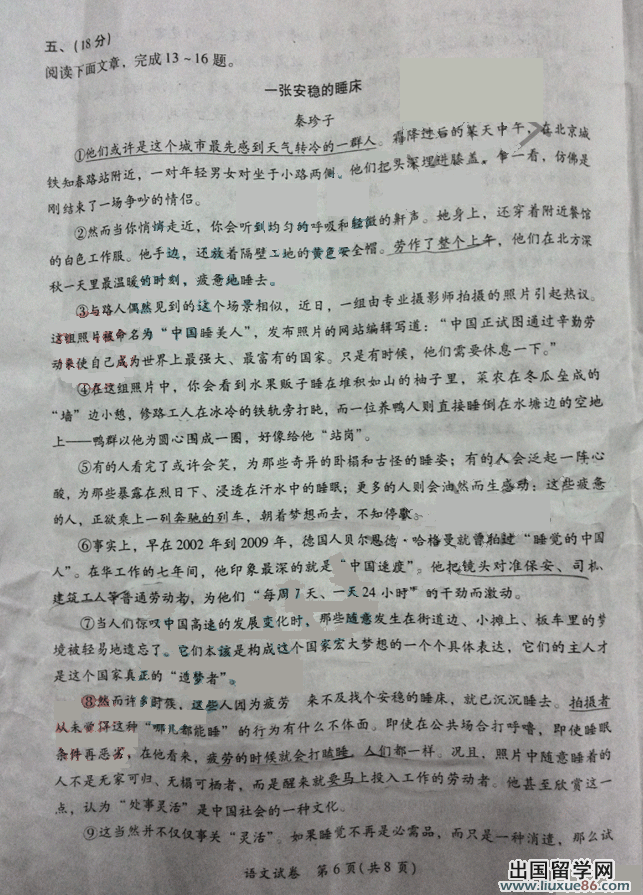 五、(18分)
阅读下面文章，完成13~16题。
一张安稳的睡床
秦珍子
①他们或许是这个城市最先感到天气转冷的一群人。霜降过后的某天中午，在北京城
铁知春路站附近，一对年轻男女对坐于小路两侧。他们把头深埋进膝盖。乍一看，仿佛是
刚结束了一场争吵的情侣。
②然而当你悄悄走近，你会听到均匀的呼吸和轻微的鼾声。她身上，还穿着附近餐馆
的白色工作服。他手边，还放着隔壁工地的黄色安全帽。劳作了整个上午，他们在北方深
秋一天里最温暖的时刻，疲惫地睡去。
③与路人偶然见到的这个场景相似，近日，一组由专业摄影师拍摄的照片引起热议。
这组照片被命名为“中国睡美人”，发布照片的网站编辑写道：“中国正试图通过辛勤劳
动来使自己成为世界上最强大、最富有的国家。只是有时候，他们需要休息一下。”
④在这组照片中，你会看到水果贩子睡在堆积如山的柚子里，菜农在冬瓜垒成的
“墙”边小憩，修路工人在冰冷的铁轨旁打盹，而一位养鸭人则直接睡倒在水塘边的空地
上——鸭群以他为圆心围成一圈，好像给他“站岗”。
⑤有的人看完了或许会笑，为那些奇异的卧榻和古怪的睡姿；有的人会泛起一阵心
酸，为那些暴露在烈日下、浸透在汗水中的睡眠；更多的人则会油然而生感动：这些疲惫
的人，正欲乘上一列奔驰的列车，朝着梦想而去，不知停歇。
⑥事实上，早在2002年到2009年，德国人贝尔恩德·哈格曼就曾拍过“睡觉的中国
人”。在华工作的七年间，他印象最深的就是“中国速度”。他把镜头对准保安、司机、
建筑工人等普通劳动者，为他们“每周7天、一天24小时”的干劲而激动。
⑦当人们惊叹中国高速的发展变化时，那些随意发生在街道边、小摊上、板车里的梦
境被轻易地遗忘了。它们本该是构成这个国家宏大梦想的一个个具体表达，它们的主人才
是这个国家真正的“造梦者”。
⑧然而许多时候，这些人因为疲劳 来不及找个安稳的睡床，就已沉沉睡去。拍摄者
从未觉得这种“哪儿都能睡”的行为有什么不体面。即使在公共场合打呼噜，即使睡眠
条件再恶劣，在他看来，疲劳的时候就会打瞌睡，人们都一样。况且，照片中随意睡着的
人不是无家可归、无榻可栖者，而是醒来就要马上投入工作的劳动者。他甚至欣赏这一
点，认为“处事灵活”是中国社会的一种文化。
⑨这当然并不仅仅事关“灵活”。如果睡觉不再是必需品，而只是一种消遣，那么试
语文试卷 第6页(共8页)
出国留学网
www.liuxue86.com